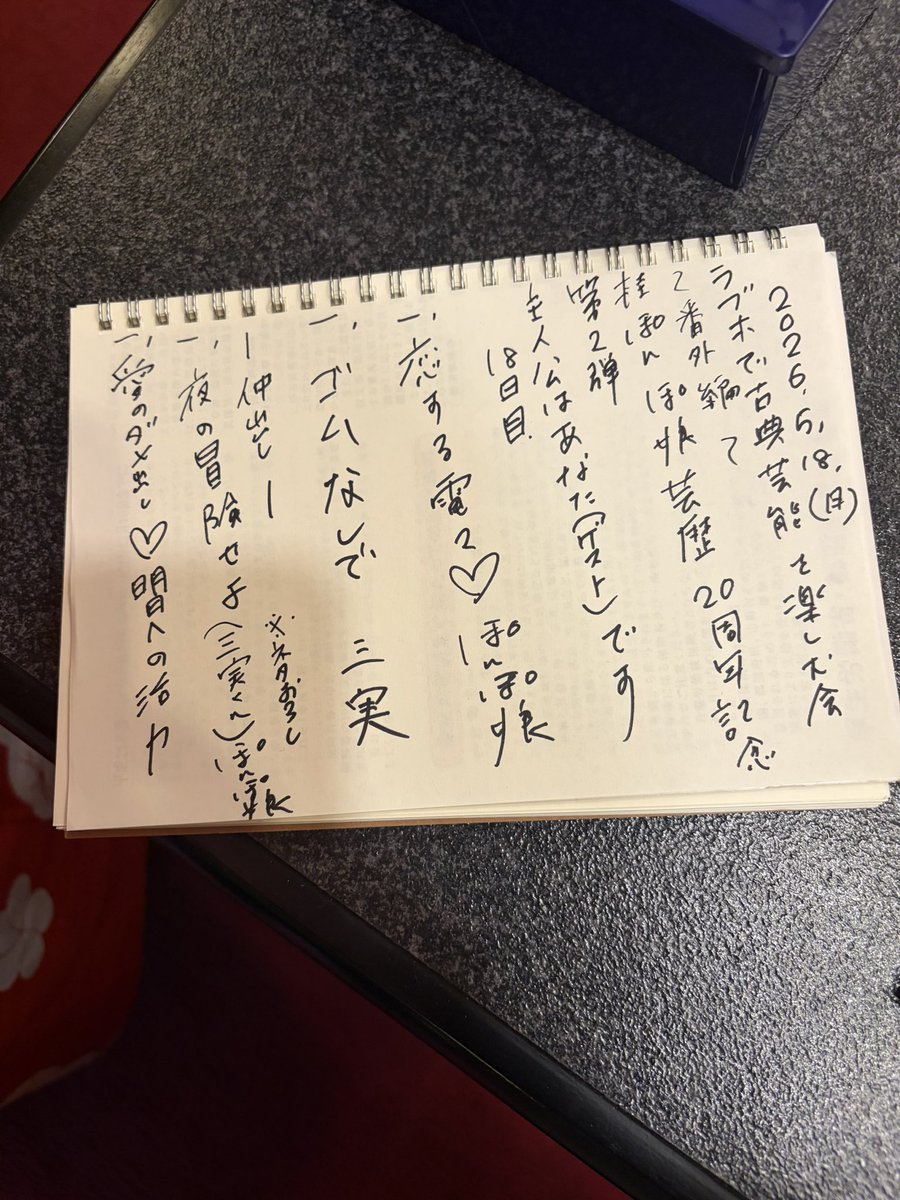 2026.5.18.(月)
ラブホで古典芸能を楽しむ会
〜番外編〜
桂ぽんぽ娘芸歴20周年記念
第2弾
主人公はあなた(ゲスト)です
18日目.
一、恋する電マ♡ ぽんぽ娘
一、ゴムなしで 三実
ー仲出しー
※ネタおろし
一、夜の冒険せよ(三実くん)ぽんぽ娘
一、愛のダメ出し♡明日への活力